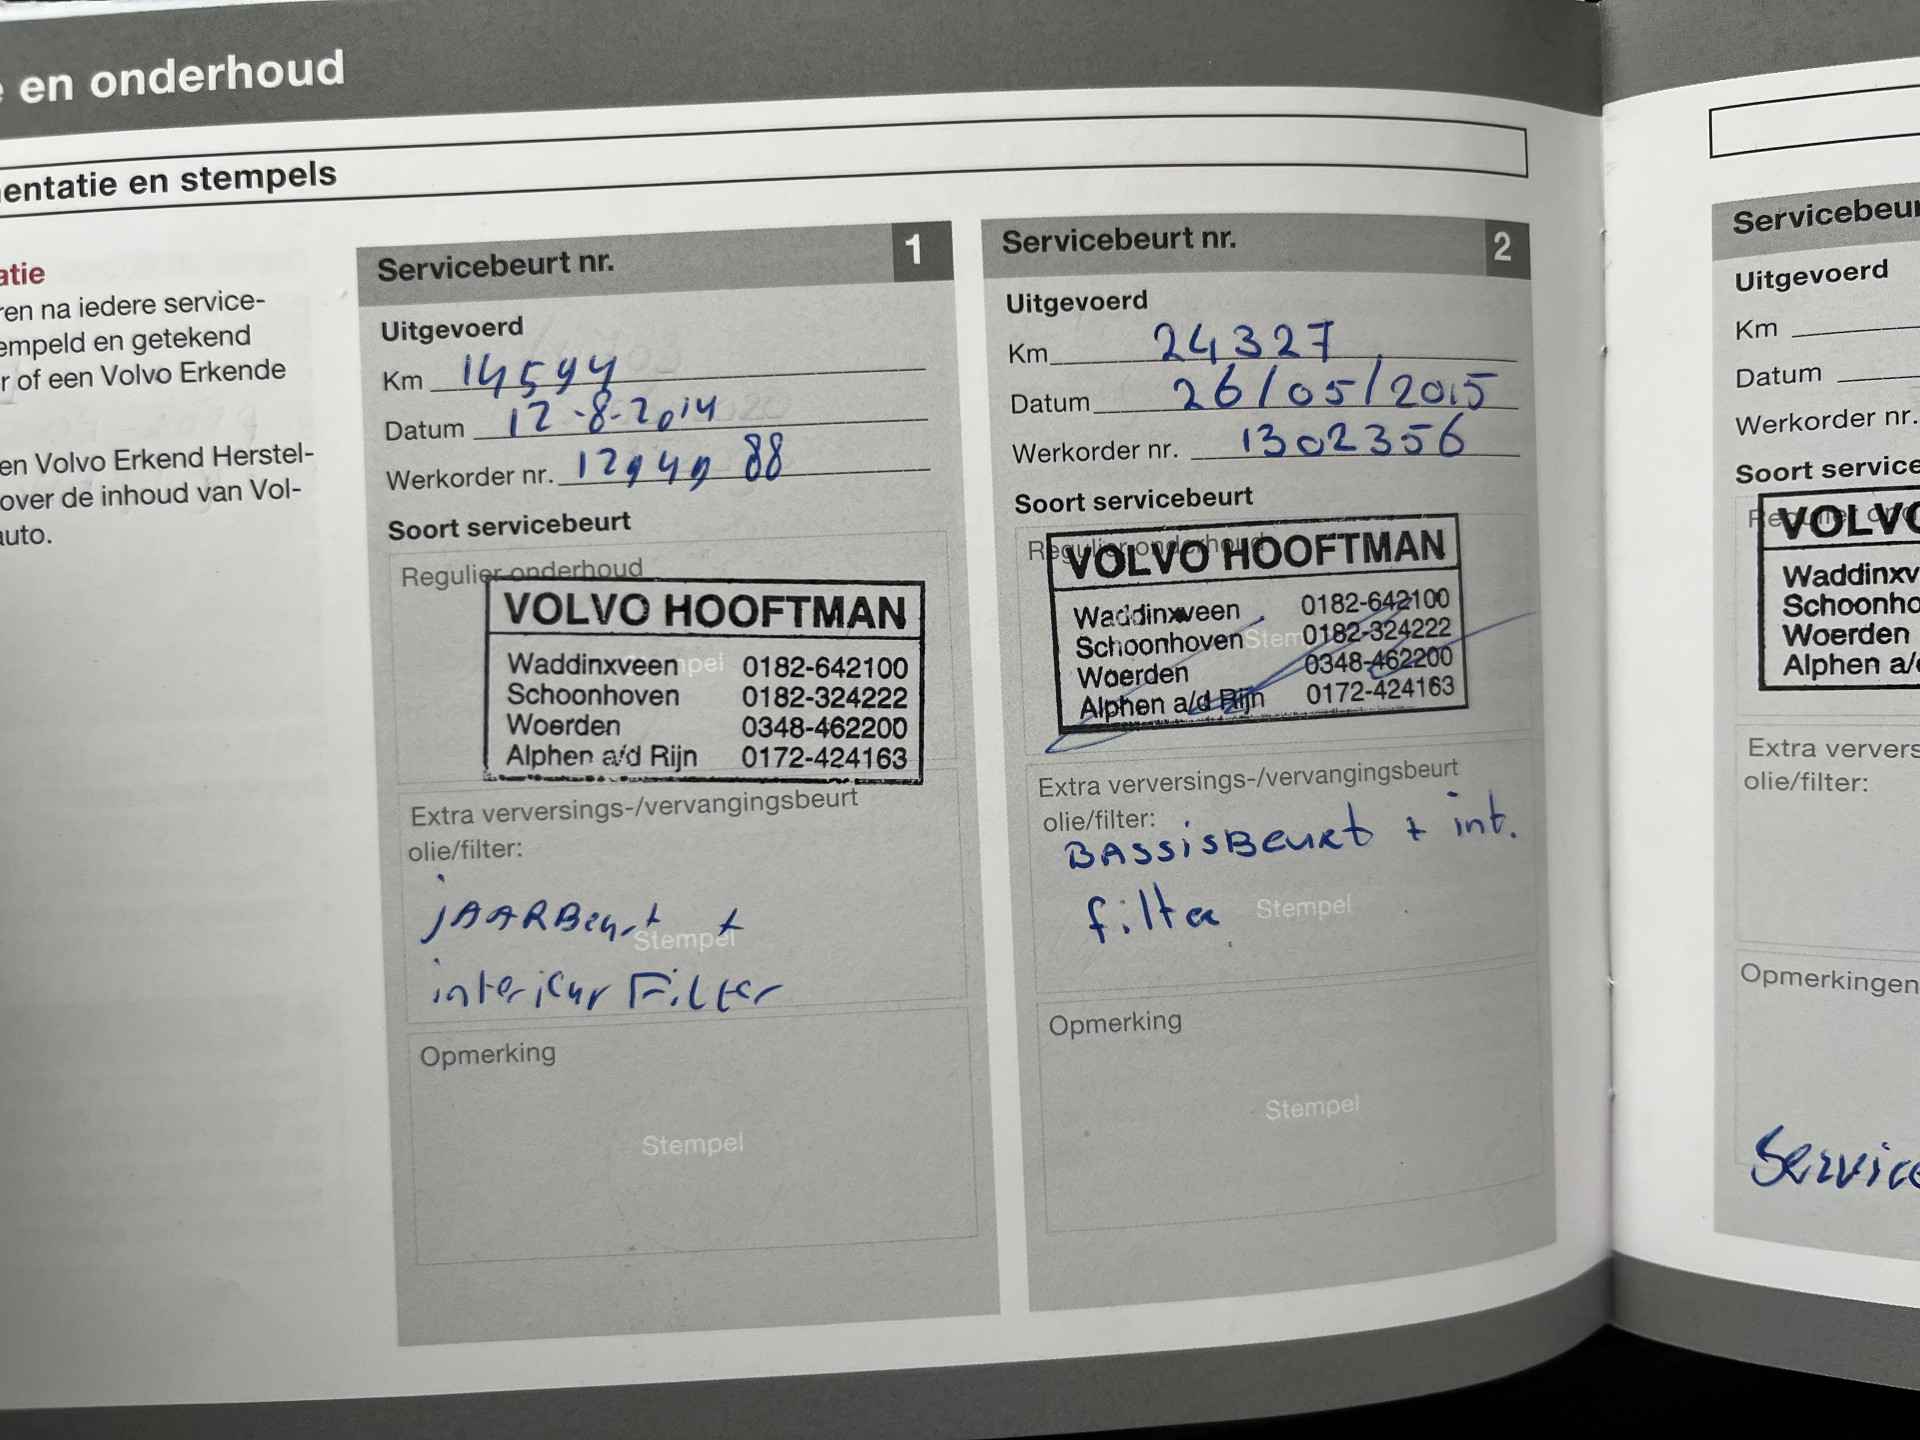 en onderhoud
entatie en stempels
atie
ren na iedere service-
empeld en getekend
r of een Volvo Erkende
en Volvo Erkend Herstel-
over de inhoud van Vol-
auto.
Servicebeurt nr. 1
Uitgevoerd
Km 14544
Datum 12-8-2014
Werkorder nr.
Soort servicebeurt
Regulier onderhoud
VOLVO HOOFTMAN
Waddinxveen 0182-642100
Schoonhoven 0182-324222
Woerden 0348-462200
Alphen a/d Rijn 0172-424163
Extra verversings-/vervangingsbeurt
olie/filter:
jAARBeurt +
Stempel
interieur Filter
Opmerking
Stempel
Servicebeurt nr. 2
Uitgevoerd
Km 24327
Datum 26/05/2015
Werkorder nr. 1302356
Soort servicebeurt
Regulier onderhoud
VOLVO HOOFTMAN
Waddinxveen 0182-642100
Schoonhoven 0182-324222
Woerden 0348-462200
Alphen a/d Rijn 0172-424163
Extra verversings-/vervangingsbeurt
olie/filter:
BASSisBeurt + int.
filter
Stempel
Opmerking
Stempel
Servicebeur
Uitgevoerd
Km
Datum
Werkorder nr.
Soort service
VOLVO
Waddinxv
Schoonho
Woerden
Alphen a/d
Extra ververs
olie/filter:
Opmerkingen
Service